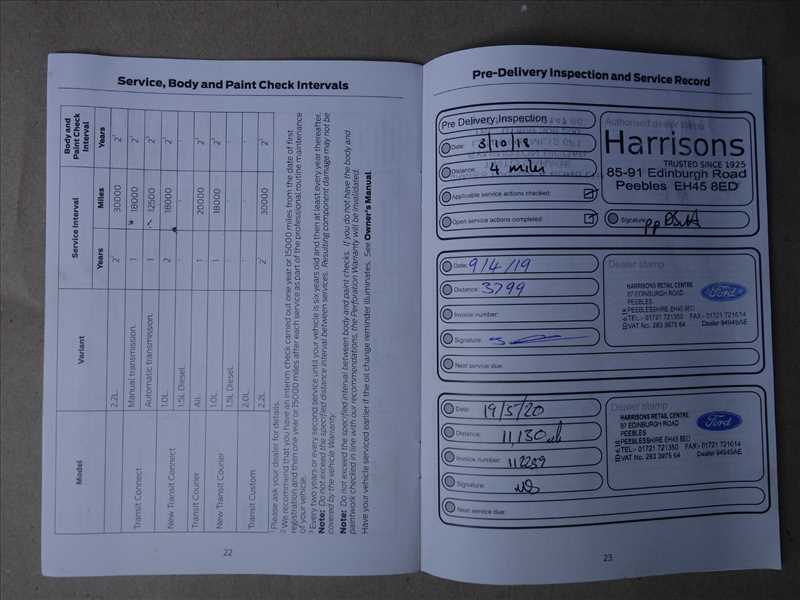 Service, Body and Paint Check Intervals
Model
Variant
Service Interval
Body and
Paint Check
Interval
Years
Miles
Years
2.2L
2²
30000
2³
Transit Connect
Manual transmission.
1
18000
2³
Automatic transmission.
1
12500
2³
New Transit Connect
1.0L
2
18000
2³
1.5L Diesel.
Transit Courier
All.
1
20000
2³
New Transit Courier
1.0L
1
18000
2³
1.5L Diesel.
Transit Custom
2.0L
2.2L
2²
30000
2³
¹ Please ask your dealer for details.
² We recommend that you have an interim check carried out one year or 15000 miles from the date of first
registration and then one year or 15000 miles after each service as part of the professional routine maintenance
of your vehicle.
³ Every two years or every second service until your vehicle is six years old and then at least every year thereafter.
Note: Do not exceed the specified distance interval between services. Resulting component damage may not be
covered by the vehicle Warranty.
Note: Do not exceed the specified interval between body and paint checks. If you do not have the body and
paintwork checked in line with our recommendations, the Perforation Warranty will be invalidated.
Have your vehicle serviced earlier if the oil change reminder illuminates. See Owner's Manual.
22
Pre-Delivery Inspection and Service Record
Pre Delivery Inspection
Date: 3/10/18
Distance: 4 miles
Applicable service actions checked:
Open service actions completed:
Harrisons
TRUSTED SINCE 1925
85-91 Edinburgh Road
Peebles EH45 8ED
Signature: pp
Date: 9/4/19
Distance: 3799
Invoice number:
Signature:
Next service due:
Dealer stamp
HARRISONS RETAIL CENTRE
87 EDINBURGH ROAD
PEEBLES
PEEBLESSHIRE EH45 8ED
TEL:- 01721 721350 FAX:- 01721 721614
VAT No. 263 3975 64 Dealer 94945AE
Ford
Date: 19/5/20
Distance: 11,130
Invoice number: 112289
Signature:
Next service due:
Dealer stamp
HARRISONS RETAIL CENTRE
87 EDINBURGH ROAD
PEEBLES
PEEBLESSHIRE EH45 8ED
TEL:- 01721 721350 FAX:- 01721 721614
VAT No. 263 3975 64 Dealer 94945AE
Ford
23